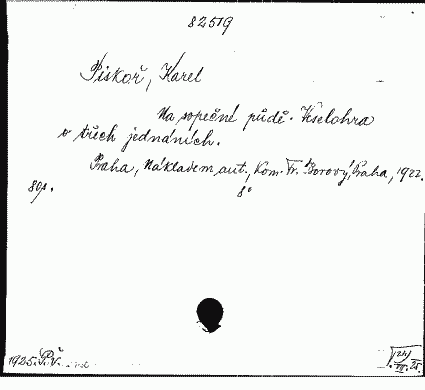 82519
Piskoř, Karel
Na sopečné půdě. Veselohra
o třech jednáních.
Praha, Nákladem aut., Kom. Fr. Borový, Praha, 1922.
80 s. 8°
1925. P. V.